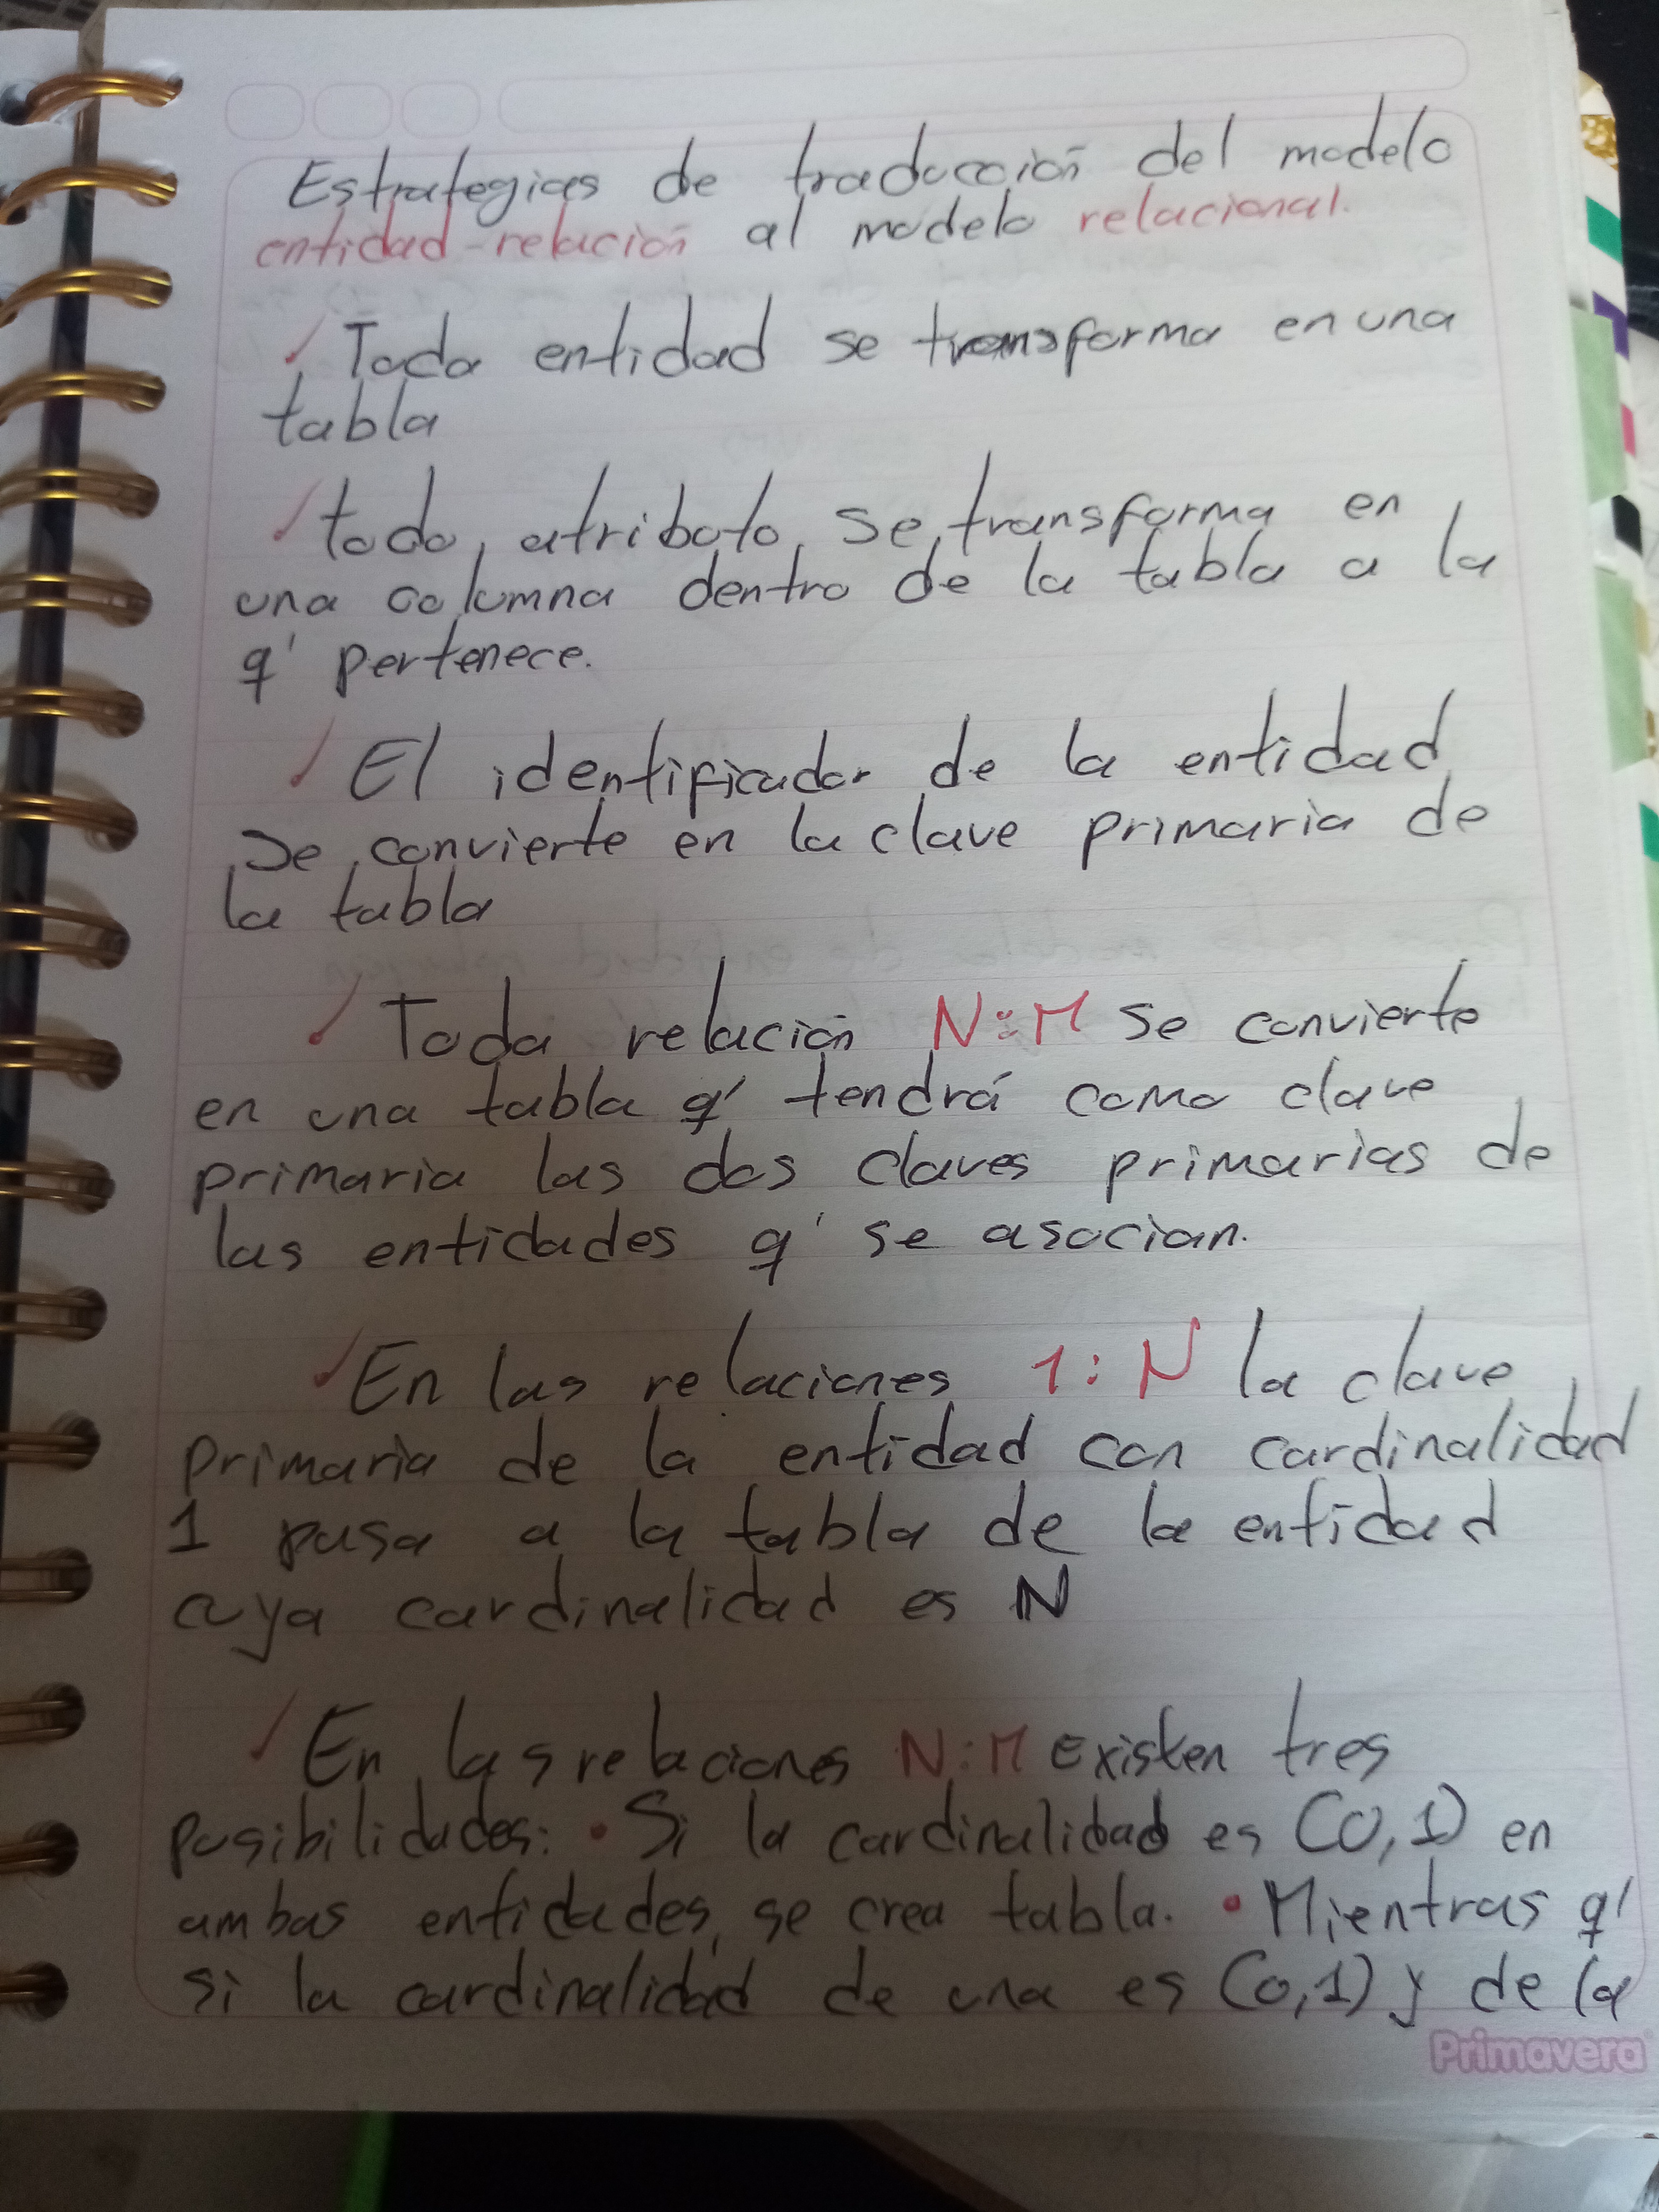 Estrategias de traducción del modelo
entidad-relación al modelo relacional.
✓ Toda entidad se transforma en una
tabla
✓ todo atributo se transforma en
una columna dentro de la tabla a la
q' pertenece.
✓ El identificador de la entidad
se convierte en la clave primaria de
la tabla
✓ Toda relación N:M se convierte
en una tabla q' tendrá como clave
primaria las dos claves primarias de
las entidades q' se asocian.
✓ En las relaciones 1:N la clave
primaria de la entidad con cardinalidad
1 pasa a la tabla de la entidad
cuya cardinalidad es N
✓ En las relaciones N:M Existen tres
posibilidades: • Si la cardinalidad es (0,1) en
ambas entidades, se crea tabla. • Mientras q'
si la cardinalidad de una es (0,1) y de la
Primavera